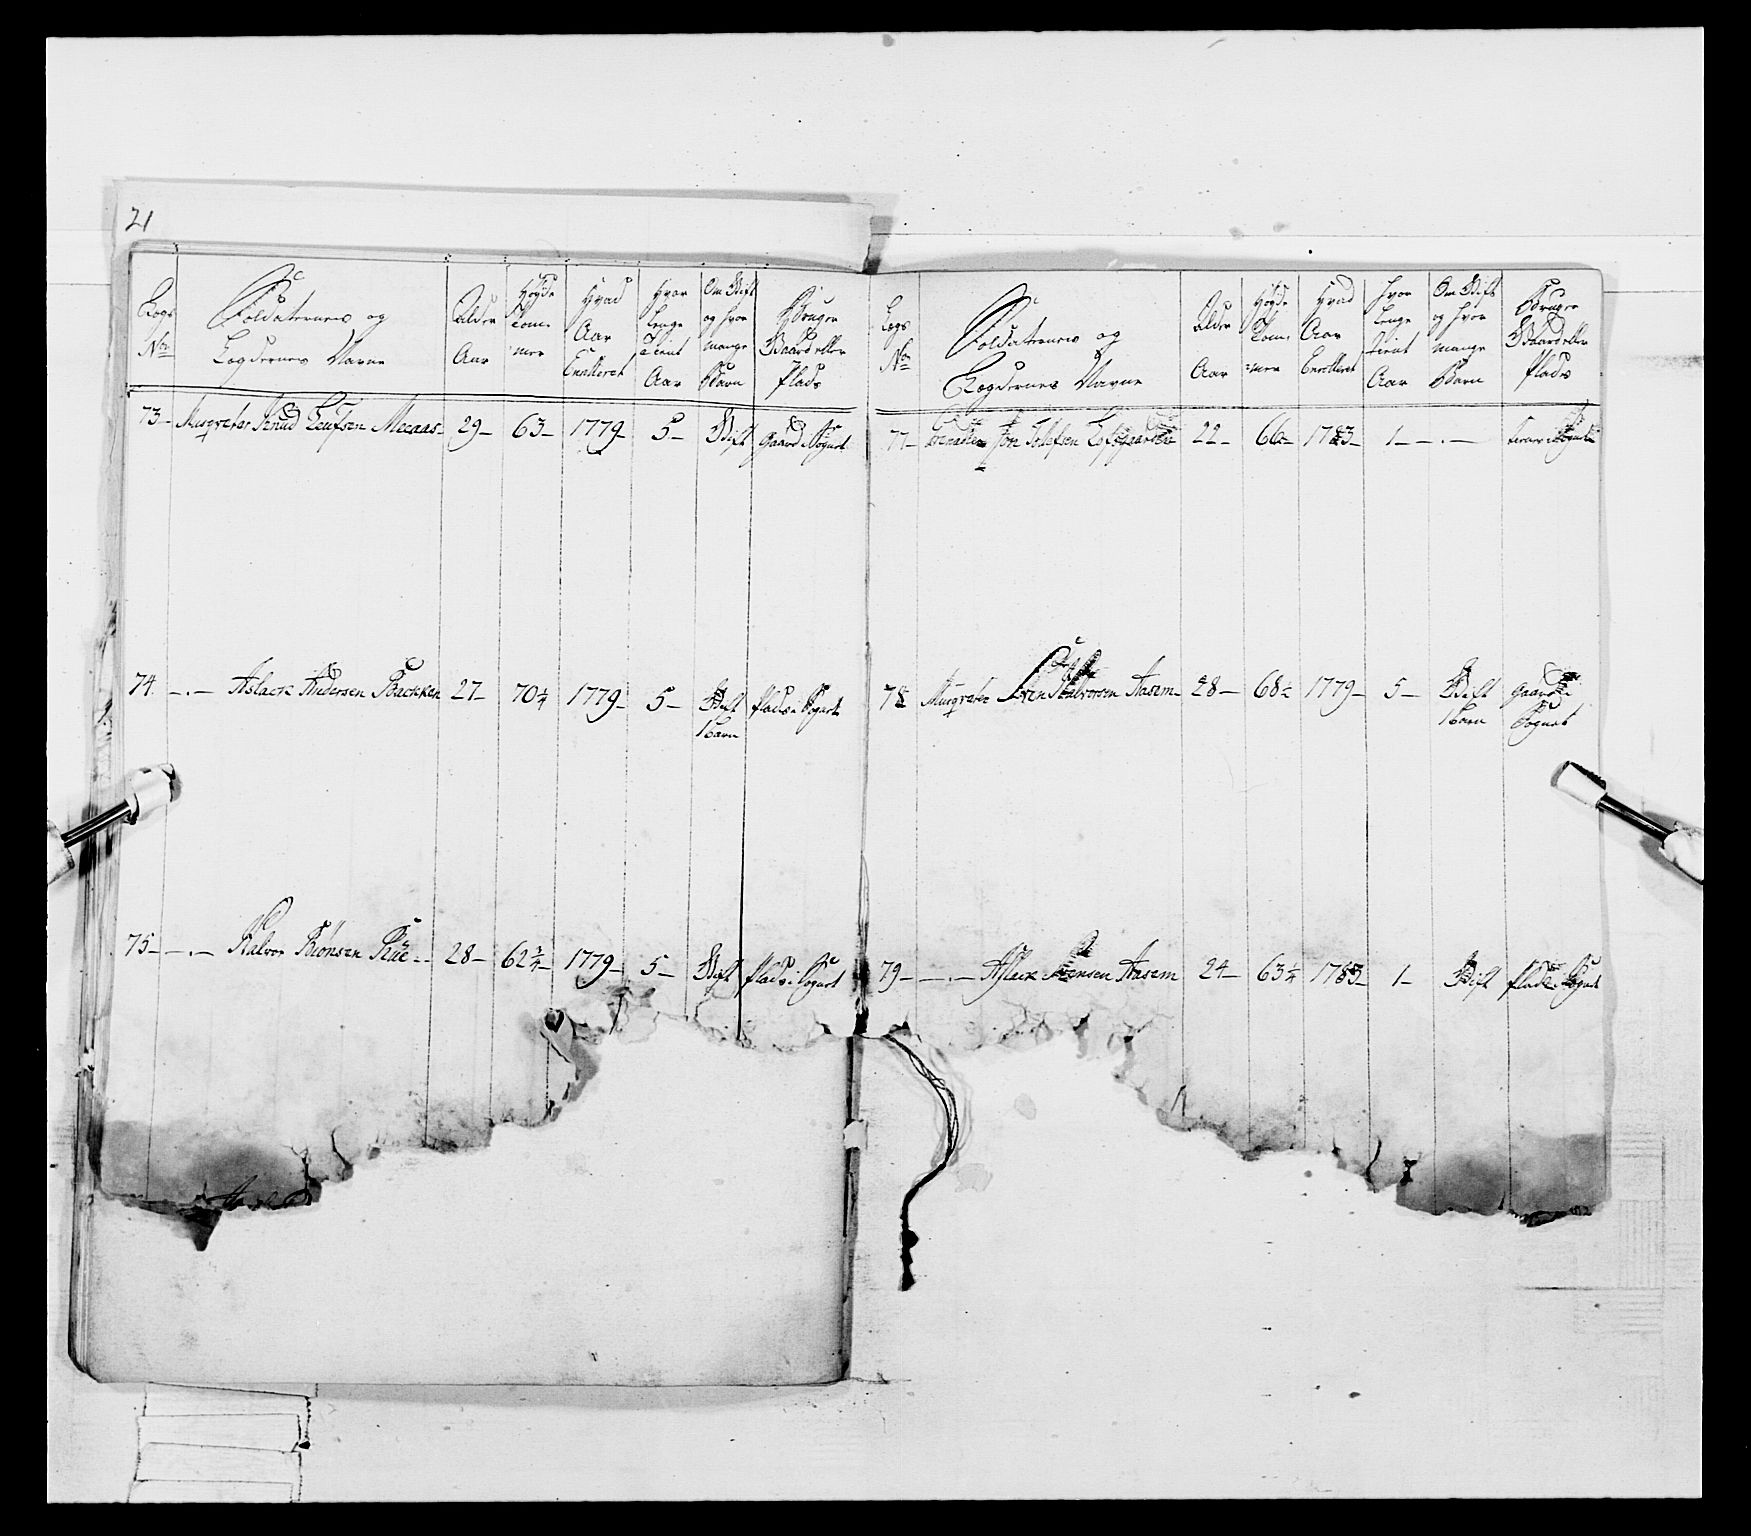 21
Lægs No Soldaternes og Lægdernes Navne Alder Aar Høyde Tommer Hvad Aar Enrolleret Hvor Lenge Tient Aar Om Gift og hvor mange Børn Bruger Gaard eller Plads
73 Musqveter Knud Leufsen 29 63 1779 5 Gift Gaard i Sognet
74 Aslack Andersen Backken 27 70¼ 1779 5 Gift Plads i Sognet
1 Barn
75 Halvor Biönsen Rue 28 62¾ 1779 5 Gift Plads i Sognet
Lægs No Soldaternes og Lægdernes Navne Alder Aar Høyde Tommer Hvad Aar Enrolleret Hvor Lenge Tient Aar Om Gift og hvor mange Børn Bruger Gaard eller Plads
77 22 66 1783 1
78 Musqveter Halvorsen Aasem 28 68½ 1779 5 Gift Gaard i
1 Barn Sognet
79 Aslack Aasem 24 63¼ 1783 1 Gift Plads i Sognet